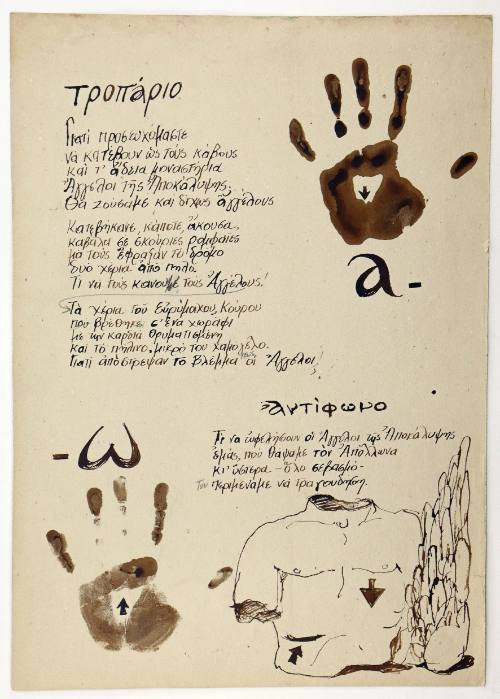 Τροπάριο
Γιατί προσευχόμαστε
νὰ κατέβουν ὡς τοὺς κάβους
καὶ τ' ἄδεια μοναστήρια
Ἄγγελοι τῆς Ἀποκάλυψης;
Θὰ ζούσαμε καὶ δίχως ἀγγέλους
Κατεβήκανε, κάποτε, ἄκουσα,
καβάλα σὲ σκούριες ρομφαῖες
μὰ τοὺς ἔφραξαν τὸ δρόμο
δυὸ χέρια ἀπὸ πηλό.
Τί νὰ τοὺς κάνουμε τοὺς Ἀγγέλους!
Τὰ χέρια τοῦ Εὐρύμαχου, Κούρου
ποὺ βρέθηκε σ' ἕνα χωράφι
μὲ τὴν καρδιὰ θρυματισμένη
καὶ τὸ πήλινο, μικρὸ του χαμόγελο.
Γιατί ἀπόστρεψαν τὸ βλέμμα οἱ Ἄγγελοι!
α-
ἀντίφωνο
Τί νὰ ὠφελήσουν οἱ Ἄγγελοι τῆς Ἀποκάλυψης
ἐμᾶς, ποὺ θάψαμε τὸν Ἀπόλλωνα
κι' ὕστερα - ὅλο σεβασμὸ -
Τον περιμέναμε νὰ τραγουδήση.
-ω